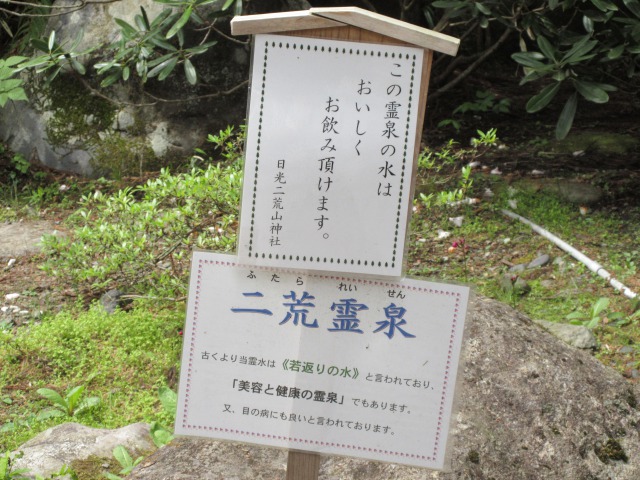 この霊泉の水は
おいしく
お飲み頂けます。
日光二荒山神社
ふたら れいせん
二荒霊泉
古くより当霊水は《若返りの水》と言われており、
「美容と健康の霊泉」でもあります。
又、目の病にも良いと言われております。